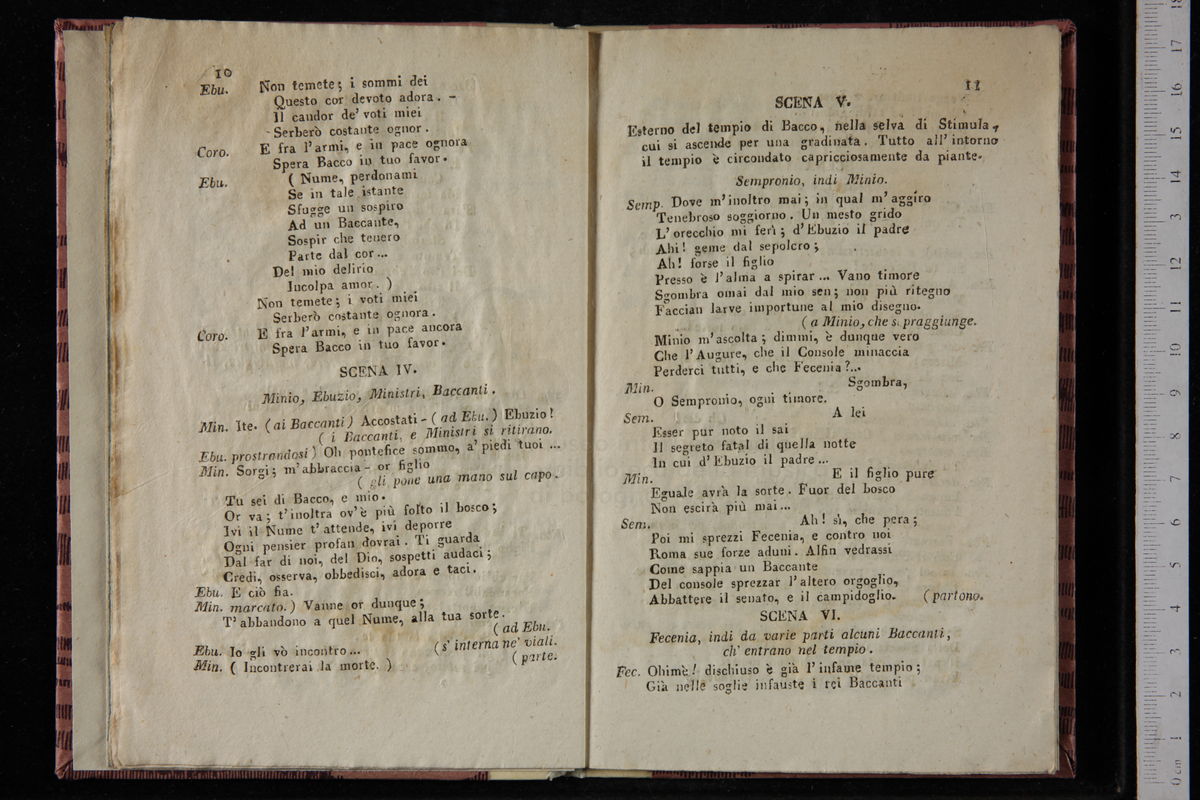 10
Ebu. Non temete; i sommi dei
Questo cor devoto adora. -
Il candor de' voti miei
Serberò costante ognor.
Coro. E fra l'armi, e in pace ognora
Spera Bacco in tuo favor.
Ebu. ( Nume, perdonami
Se in tale istante
Sfugge un sospiro
Ad un Baccante,
Sospir che tenero
Parte dal cor...
Del mio delirio
Incolpa amor. )
Non temete; i voti miei
Serberò costante ognora.
Coro. E fra l'armi, e in pace ancora
Spera Bacco in tuo favor.
SCENA IV.
Minio, Ebuzio, Ministri, Baccanti.
Min. Ite. (ai Baccanti) Accostati - (ad Ebu.) Ebuzio!
( i Baccanti, e Ministri si ritirano.
Ebu. prostrandosi) Oh pontefice sommo, a' piedi tuoi ...
Min. Sorgi; m'abbraccia - or figlio
( gli pone una mano sul capo.
Tu sei di Bacco, e mio.
Or va; t'inoltra ov'è più folto il bosco;
Ivi il Nume t'attende, ivi deporre
Ogni pensier profan dovrai. Ti guarda
Dal far di noi, del Dio, sospetti audaci;
Credi, osserva, obbedisci, adora e taci.
Ebu. E ciò fia.
Min. marcato.) Vanne or dunque;
T'abbandono a quel Nume, alla tua sorte.
( ad Ebu.
Ebu. Io gli vò incontro... (s' interna ne' viali.
Min. ( Incontrerai la morte. ) ( parte.
11
SCENA V.
Esterno del tempio di Bacco, nella selva di Stimula,
cui si ascende per una gradinata. Tutto all' intorno
il tempio è circondato capricciosamente da piante.
Sempronio, indi Minio.
Semp. Dove m'inoltro mai; in qual m'aggiro
Tenebroso soggiorno. Un mesto grido
L'orecchio mi ferì; d'Ebuzio il padre
Ahi! geme dal sepolcro;
Ah! forse il figlio
Presso è l'alma a spirar... Vano timore
Sgombra omai dal mio sen; non più ritegno
Faccian larve importune al mio disegno.
( a Minio, che sopraggiunge.
Minio m'ascolta; dimmi, è dunque vero
Che l'Augure, che il Console minaccia
Perderci tutti, e che Fecenia?...
Min. Sgombra,
O Sempronio, ogni timore.
Sem. A lei
Esser pur noto il sai
Il segreto fatal di quella notte
In cui d'Ebuzio il padre...
Min. E il figlio pure
Eguale avrà la sorte. Fuor del bosco
Non escirà più mai...
Sem. Ah! sì, che pera;
Poi mi sprezzi Fecenia, e contro noi
Roma sue forze aduni. Alfin vedrassi
Come sappia un Baccante
Del console sprezzar l'altero orgoglio,
Abbattere il senato, e il campidoglio. (partono.
SCENA VI.
Fecenia, indi da varie parti alcuni Baccanti,
ch' entrano nel tempio.
Fec. Ohimè! dischiuso è già l'infame tempio;
Già nelle soglie infauste i rei Baccanti
0 cm 1 2 3 4 5 6 7 8 9 10 11 12 13 14 15 16 17 18